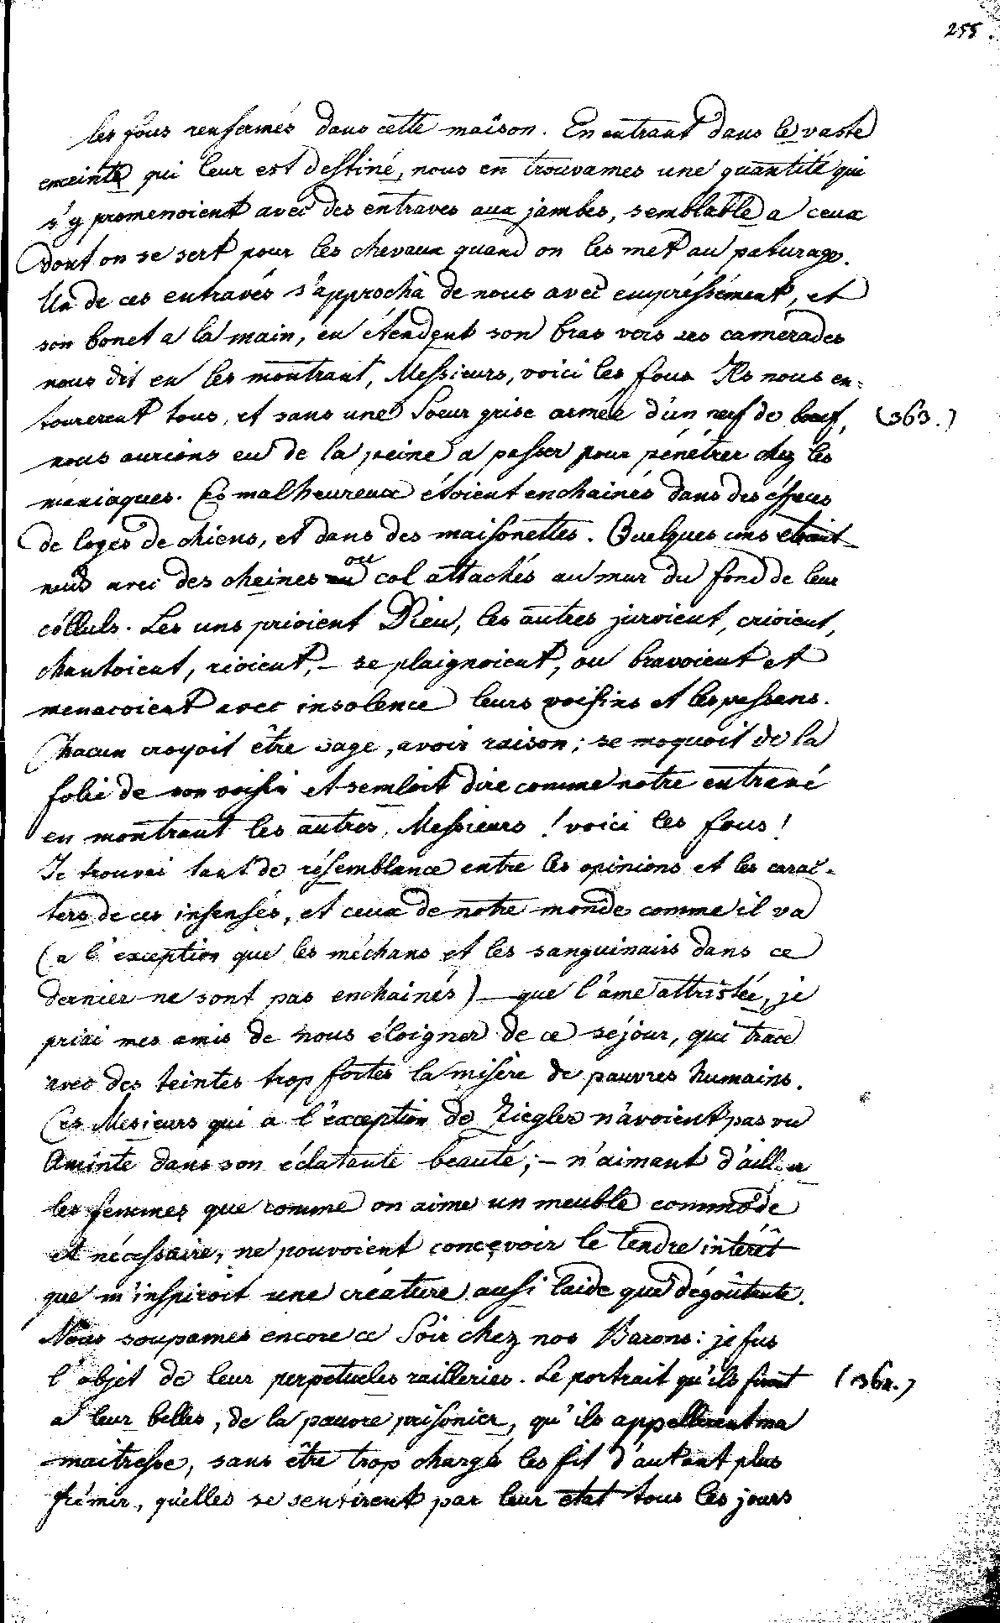 255
les fous renfermés dans cette maison. En entrant dans le vaste
enceinte qui leur est destiné, nous en trouvames une quantité qui
s'y promenoient avec des entraves aux jambes, semblable a ceux
dont on se sert pour les chevaux quand on les met au paturage.
Un de ces entravés s'approcha de nous avec empréssément, et
son bonet a la main, en étendent son bras vers ses camerades
nous dit en les montrant, Messieurs, voici les fous Ils nous en=
tourerent tous, et sans une Soeur grise armée d'un nerf de boeuf, (363.)
nous aurions eu de la peine a passer pour pénétrer chez les
maniaques. Ces malheureux étoient enchainés dans des éspeces
de loges de chiens, et dans des maisonettes. Quelques uns etoint
nuds avec des cheines ou col attachés au mur du fond de leur
célluls. Les uns prioient Dieu, les autres juroient, crioient,
chantoient, rioient, – se plaignoient, ou bravoient et
menacoient avec insolence leurs voisins et les passans.
Chacun croyoit être sage, avoir raison; se moquoit de la
folie de son voisin et semloit dire comme notre entravé
en montrant les autres, Messieurs! voici les fous!
Je trouvai tant de résemblance entre les opinions et les carac-
ters de ces insensés, et ceux de notre monde comme il va
(a l'exception que les méchans et les sanguinairs dans ce
dernier ne sont pas enchainés) – que l'ame attristée, je
priai mes amis de nous éloigner de ce séjour, qui trace
avec des teintes trop fortes la misère de pauvres humains.
Ces Mesieurs qui a l'éxception de Ziegler n'avoient pas vu
Aminte dans son éclatante beauté; – n'aimant d'ailleur
les femmes que comme on aime un meuble commode
et nécessaire, ne pouvoient conçevoir le tendre intérêt
que m'inspiroit une créature aussi laide que dégoûtente.
Nous soupames encore ce Soir chez nos Barons: je fus
l'objet de leur perpetueles railleries. Le portrait qu'ils firent (364.)
a leur belles, de la pauvre prisonier, qu'ils appellerent ma
maitresse, sans être trop chargé les fit d'autant plus
frémir, qu'elles se sentirent par leur etat tous les jours